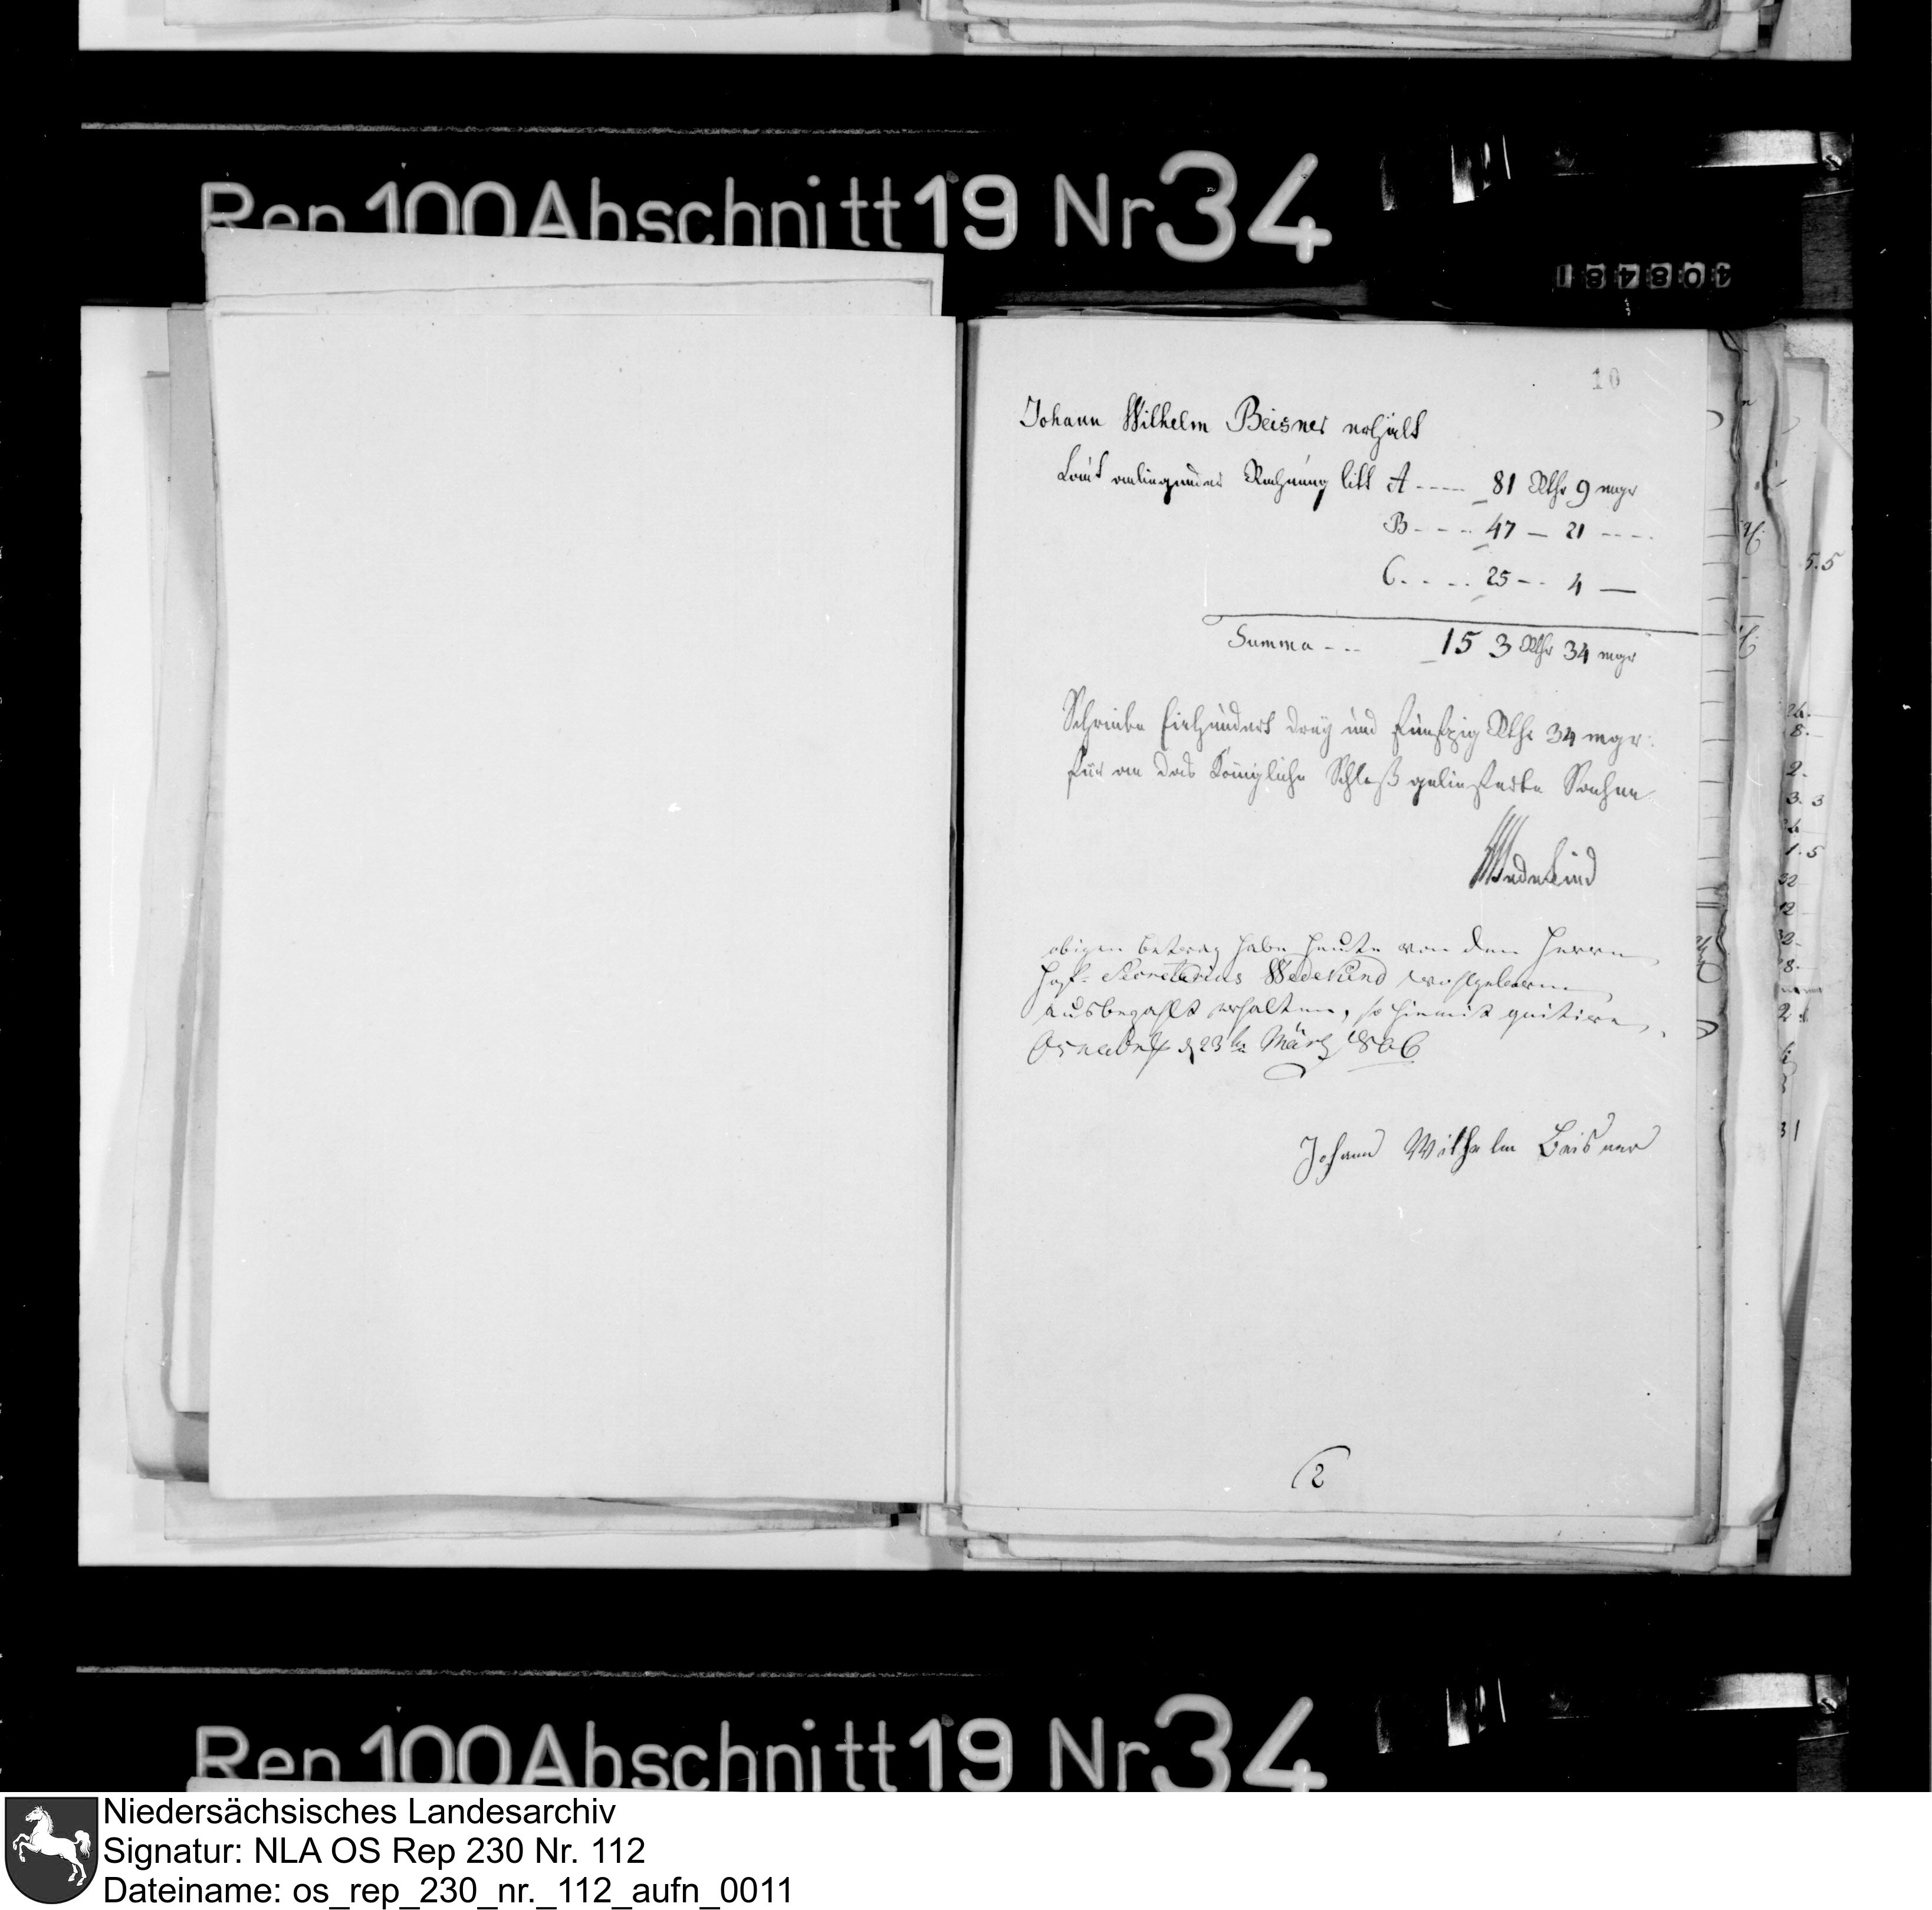 Rep 100 Abschnitt 19 Nr 34
408481
10
Johann Wilhelm Beisner erhält
Laut anliegender Rechnung litt A ----- 81 Rthr 9 mgr
B - - - - 47 — 21 - - - -
C. - - - - 25 - - 4 —
Summa - - - 153 Rthr 34 mgr
Schreibe Einhundert drey und funfzig Rthr 34 mgr:
für an das Königliche Schloß geliefferte Sachen
Wedekind
obigen betrag habe heute von dem Herrn
Hof- Secretarius Wedekind wohlgeboren
ausbezahlt erhalten, so hiemit quitire,
Osnabrük d 23ten Märtz 1806
Johann Wilhelm Beisner
2
Rep 100 Abschnitt 19 Nr 34
Niedersächsisches Landesarchiv
Signatur: NLA OS Rep 230 Nr. 112
Dateiname: os_rep_230_nr._112_aufn_0011